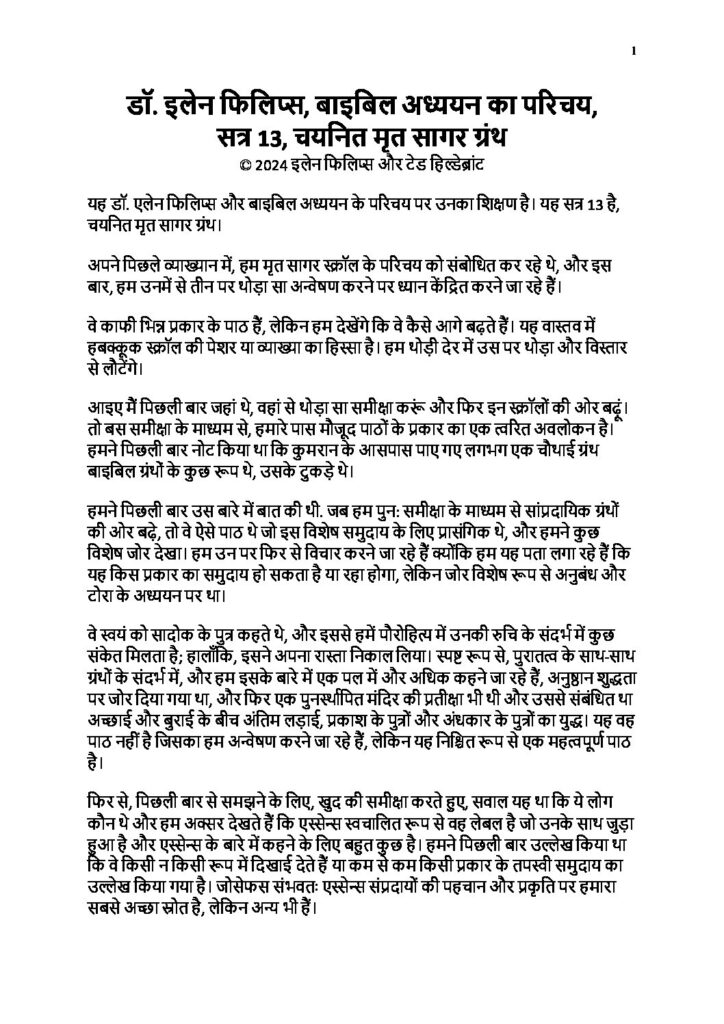 1
डॉ. इलेन फिलिप्स, बाइबिल अध्ययन का परिचय,
सत्र 13, चयनित मृत सागर ग्रंथ
© 2024 इलेन फिलिप्स और टेड हिल्डेब्रांट
यह डॉ. एलेन फिलिप्स और बाइबिल अध्ययन के परिचय पर उनका शिक्षण है। यह सत्र 13 है,
चयनित मृत सागर ग्रंथ।
अपने पिछले व्याख्यान में, हम मृत सागर स्क्रॉल के परिचय को संबोधित कर रहे थे, और इस
बार, हम उनमें से तीन पर थोड़ा सा अन्वेषण करने पर ध्यान केंद्रित करने जा रहे हैं।
वे काफी भिन्न प्रकार के पाठ हैं, लेकिन हम देखेंगे कि वे कैसे आगे बढ़ते हैं। यह वास्तव में
हबक्कूक स्क्रॉल की पेशर या व्याख्या का हिस्सा है। हम थोड़ी देर में उस पर थोड़ा और विस्तार
से लौटेंगे।
आइए मैं पिछली बार जहां थे, वहां से थोड़ा सा समीक्षा करूं और फिर इन स्क्रॉलों की ओर बढ़ूं।
तो बस समीक्षा के माध्यम से, हमारे पास मौजूद पाठों के प्रकार का एक त्वरित अवलोकन है।
हमने पिछली बार नोट किया था कि कुमरान के आसपास पाए गए लगभग एक चौथाई ग्रंथ
बाइबिल ग्रंथों के कुछ रूप थे, उसके टुकड़े थे।
हमने पिछली बार उस बारे में बात की थी. जब हम पुन: समीक्षा के माध्यम से सांप्रदायिक ग्रंथों
की ओर बढ़े, तो वे ऐसे पाठ थे जो इस विशेष समुदाय के लिए प्रासंगिक थे, और हमने कुछ
विशेष जोर देखा। हम उन पर फिर से विचार करने जा रहे हैं क्योंकि हम यह पता लगा रहे हैं कि
यह किस प्रकार का समुदाय हो सकता है या रहा होगा, लेकिन जोर विशेष रूप से अनुबंध और
टोरा के अध्ययन पर था।
वे स्वयं को सादोक के पुत्र कहते थे, और इससे हमें पौरोहित्य में उनकी रुचि के संदर्भ में कुछ
संकेत मिलता है; हालाँकि, इसने अपना रास्ता निकाल लिया। स्पष्ट रूप से, पुरातत्व के साथ-साथ
ग्रंथों के संदर्भ में, और हम इसके बारे में एक पल में और अधिक कहने जा रहे हैं, अनुष्ठान शुद्धता
पर जोर दिया गया था, और फिर एक पुनर्स्थापित मंदिर की प्रतीक्षा भी थी और उससे संबंधित था
अच्छाई और बुराई के बीच अंतिम लड़ाई, प्रकाश के पुत्रों और अंधकार के पुत्रों का युद्ध। यह वह
पाठ नहीं है जिसका हम अन्वेषण करने जा रहे हैं, लेकिन यह निश्चित रूप से एक महत्वपूर्ण पाठ
है।
फिर से, पिछली बार से समझने के लिए, खुद की समीक्षा करते हुए, सवाल यह था कि ये लोग
कौन थे और हम अक्सर देखते हैं कि एस्सेन्स स्वचालित रूप से वह लेबल है जो उनके साथ जुड़ा
हुआ है और एस्सेन्स के बारे में कहने के लिए बहुत कुछ है। हमने पिछली बार उल्लेख किया था
कि वे किसी न किसी रूप में दिखाई देते हैं या कम से कम किसी प्रकार के तपस्वी समुदाय का
उल्लेख किया गया है। जोसेफस संभवतः एस्सेन्स संप्रदायों की पहचान और प्रकृति पर हमारा
सबसे अच्छा स्रोत है, लेकिन अन्य भी हैं।